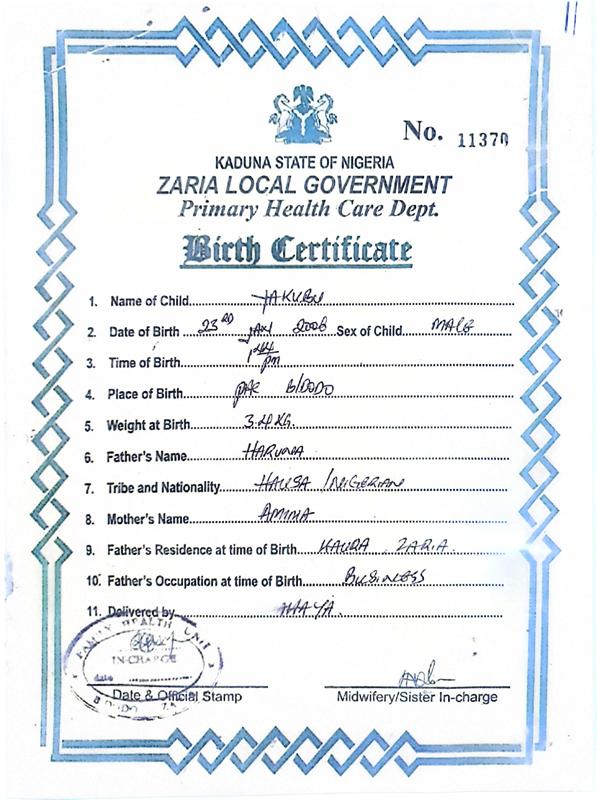 No. 11370
KADUNA STATE OF NIGERIA
ZARIA LOCAL GOVERNMENT
Primary Health Care Dept.
Birth Certificate
1. Name of Child YAKUBU
2. Date of Birth 23RD JAN 2006 Sex of Child MALE
3. Time of Birth 1:44 pm
4. Place of Birth B/DODO
5. Weight at Birth 3.4KG.
6. Father's Name HARUNA
7. Tribe and Nationality HAUSA / NIGERIAN
8. Mother's Name AMINA
9. Father's Residence at time of Birth KAURA ZARIA.
10. Father's Occupation at time of Birth BUSINESS
11. Delivered by
FAMILY HEALTH UNIT
IN-CHARGE
date
Date & Official Stamp Midwifery/Sister In-charge